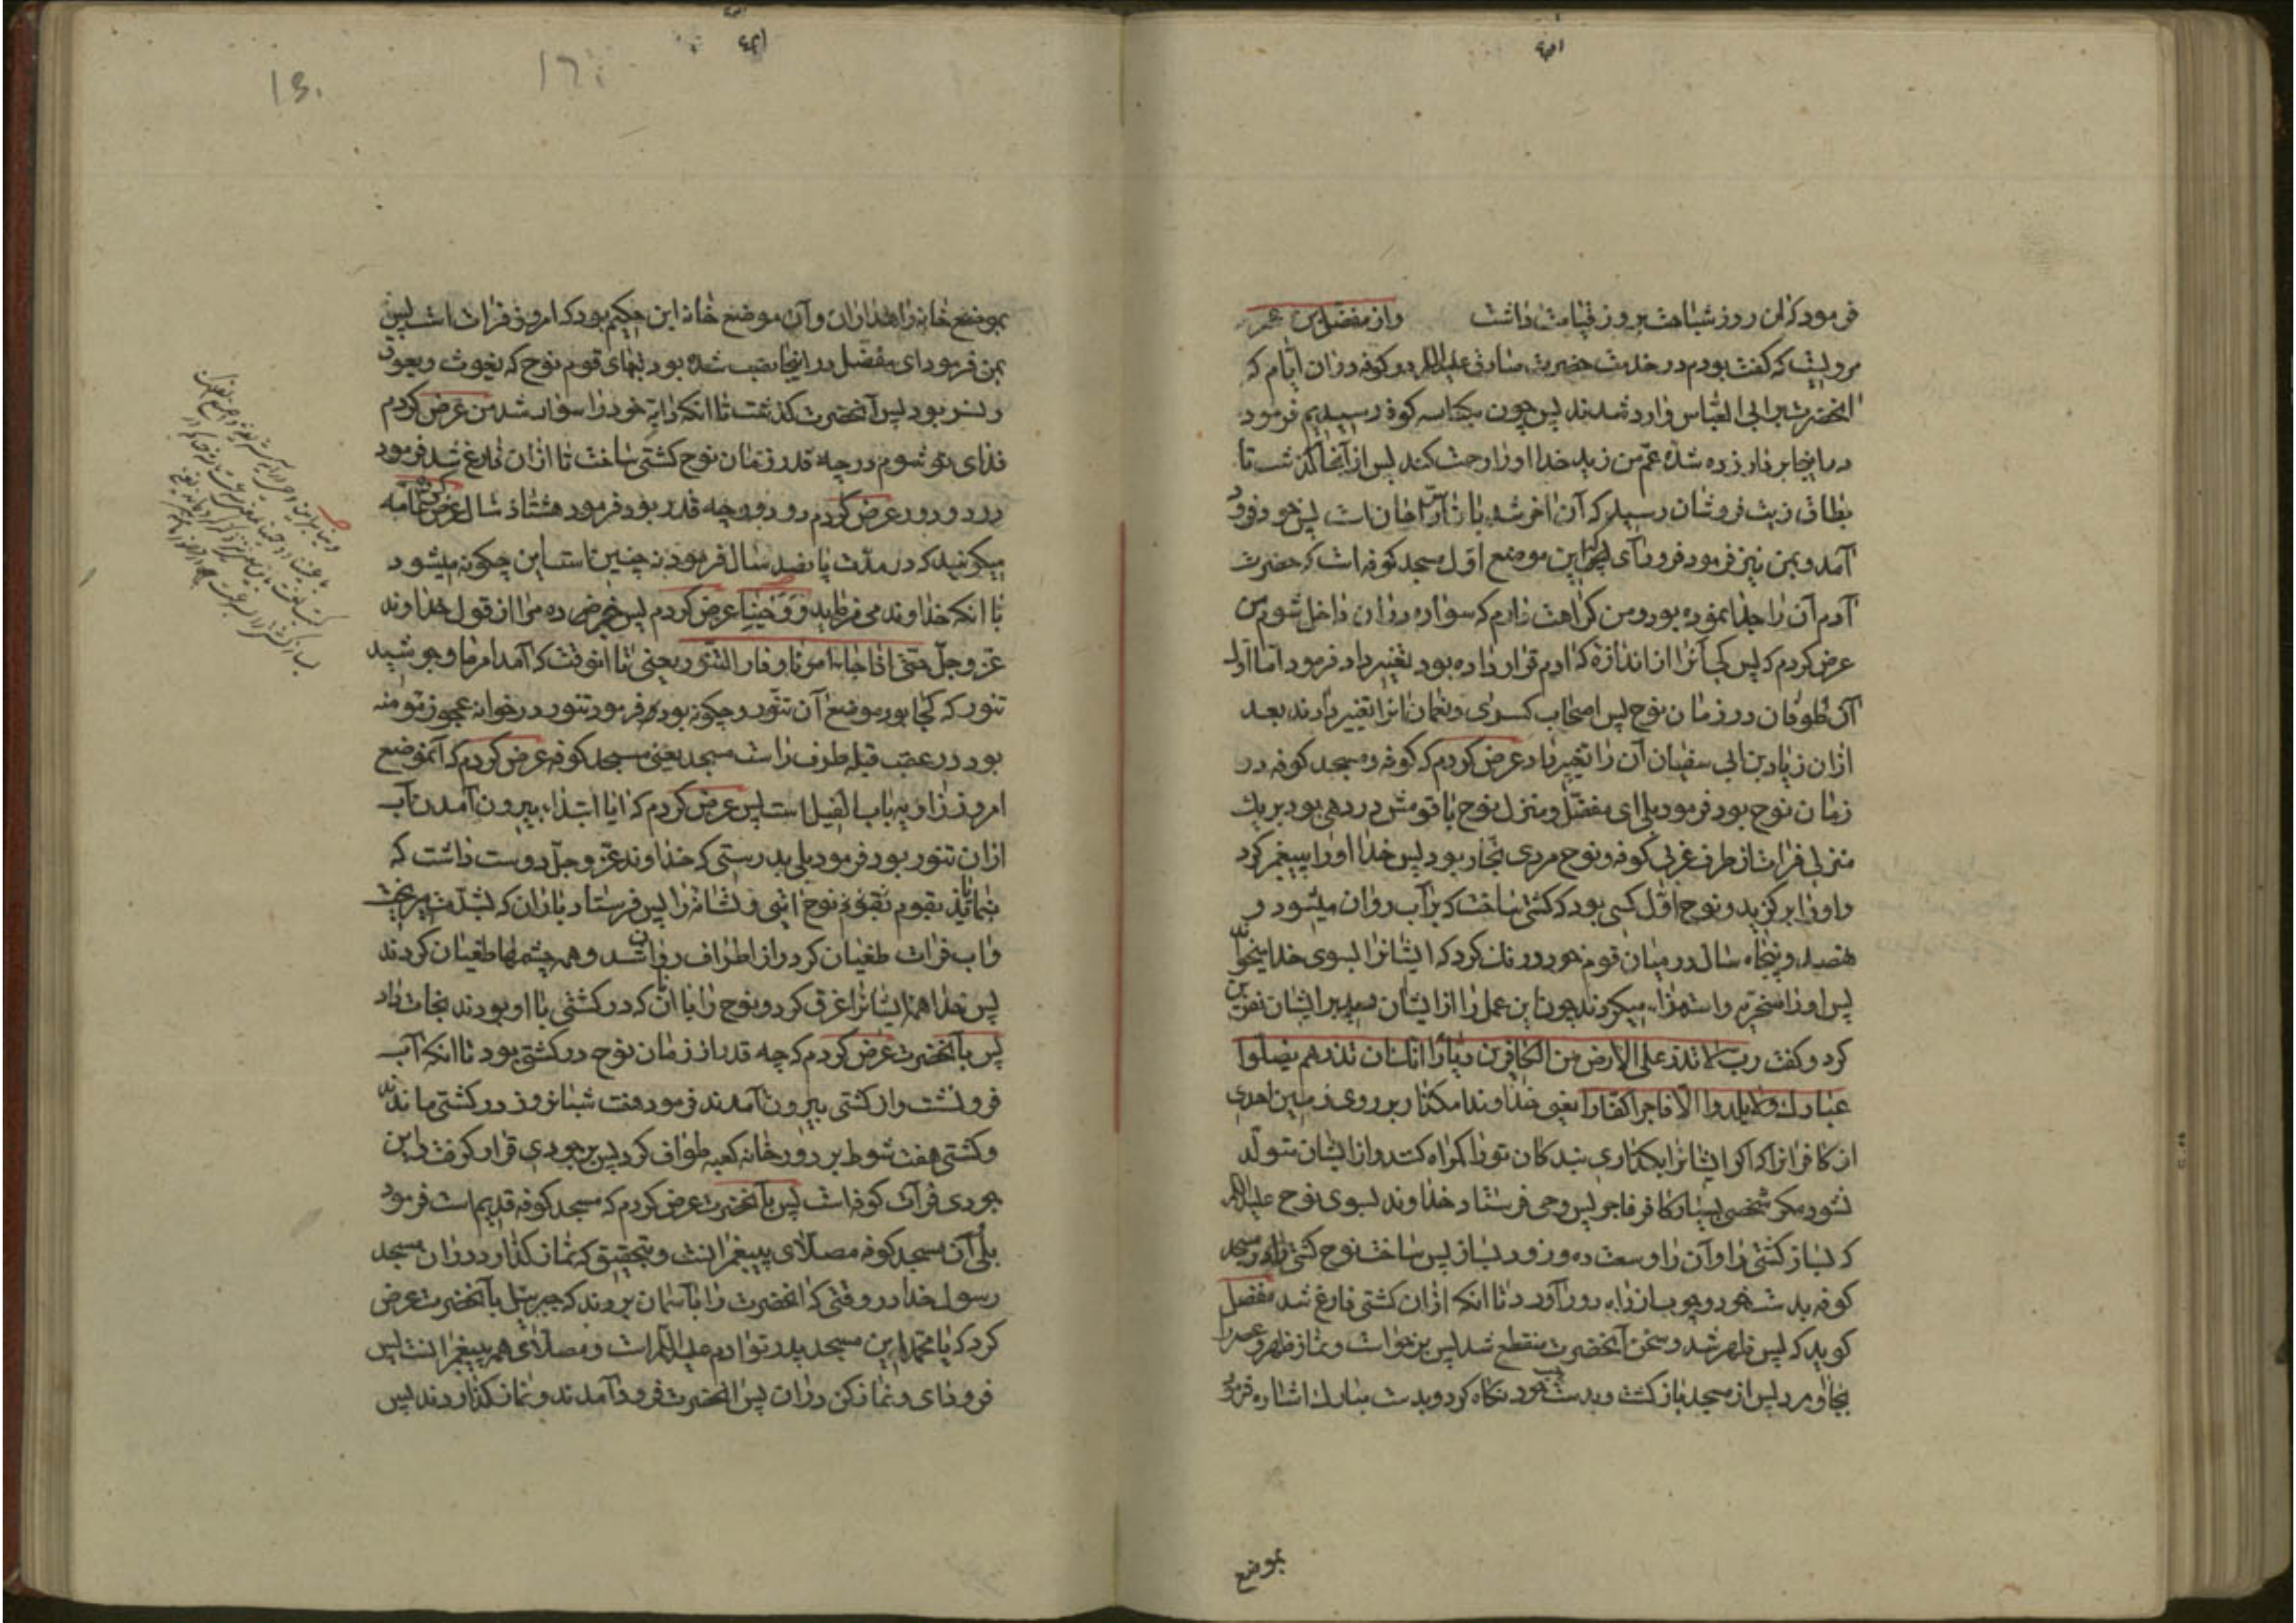 فرمود که آن روز شباهت بروز قیامت داشت و از مفضل بن عمر
مرویست که گفت بودم در خدمت حضرت صادق علیه السلام در کوفه در آن ایام که
آنحضرت بر ابی العباس وارد شدند پس چون بکناسه کوفه رسیدیم فرمود
در اینجا بر دار زده شد عم من زید خدا او را رحمت کند پس از آنجا گذشت تا
بطاق زیت فروشان رسید که آن آخر سراجان است پس خود فرود
آمد و بمن نیز فرمود فرود آی که این موضع اول مسجد کوفه است که حضرت
آدم آن را جدا نموده بود و من کراهت دارم که سواره در آن داخل شوم من
عرض کردم که پس کی آنرا از اندازه که آدم قرار داده بود تغییر داد فرمود اما اول
آن طوفان در زمان نوح پس اصحاب کسری و نعمان آنرا تغییر دادند بعد
ازان زیاد بن ابی سفیان آن را تغییر داد عرض کردم که کوفه و مسجد کوفه در
زمان نوح بود فرمود بلی ای مفضل و منزل نوح با قومش در دهی بود بر یک
منزلی فرات از طرف غربی کوفه و نوح مردی نجار بود پس خدا او را پیغمبر کرد
و او را برگزید و نوح اول کسی بود که کشتی ساخت که بر آب روان میشود و
هفصد و پنجاه سال در میان قوم خود درنگ کرد که ایشانرا بسوی خدا میخواند
پس او را سخریه و استهزاء میکردند چون این عمل را از ایشان دید بر ایشان نفرین
کرد و گفت رب لا تذر علی الارض من الکافرین دیارا انک ان تذرهم یضلوا
عبادک ولا یلدوا الا فاجرا کفارا یعنی خداوندا مگذار بر روی زمین احدی
از کافرانرا که اگر ایشانرا بگذاری بندگان تو را گمراه کنند و از ایشان متولد
نشود مگر شخصی بسیار کافر فاجر پس وحی فرستاد خداوند بسوی نوح علیه السلام
که بساز کشتی را و آن را وسعت ده و زود بساز پس ساخت نوح کشتی را در مسجد
کوفه بدست خود و چوب از راه دور آورد تا آنکه ازان کشتی فارغ شد مفضل
گوید که پس ظهر شد و سخن آنحضرت منقطع شد پس برخواست و نماز ظهر و عصر را
بجا آورد پس از مسجد باز گشت و بدست چپ خود نگاه کرد و بدست مبارک اشاره فرمود
بموضع
بموضع خانه و آن موضع خانه ابن حکیم بود که امروز فرات است پس
بمن فرمود ای مفضل در اینجا نصب شده بود بتهای قوم نوح که یغوث و یعوق
و نسر بود پس آنحضرت گذشت تا آنکه دابه خود را سوار شد من عرض کردم
فدای تو شوم در چه قدر زمان نوح کشتی ساخت تا ازان فارغ شد فرمود
در دو دور عرض کردم دو دور چه قدر بود فرمود هشتاد سال عرض کردم عامه
میگویند که در مدت پانصد سال فرمود نه چنین است این چگونه میشود
با آنکه خداوند می فرماید و وحینا عرض کردم پس خبر ده مرا از قول خداوند
عز و جل حتی اذا جاء امرنا و فار التنور یعنی تا آنوقت که آمد امر ما و جوشید
تنور که کجا بود موضع آن تنور و چگونه بود فرمود تنور در خانه عجوز مؤمنه
بود در عقب قبله طرف راست مسجد یعنی مسجد کوفه عرض کردم که آنموضع
امروز زاویه باب الفیل است پس عرض کردم که آیا ابتداء بیرون آمدن آب
ازان تنور بود فرمود بلی بدرستی که خداوند عز و جل دوست داشت که
بنمایاند بقوم نوح آیتی و نشانه را پس فرستاد باران که بشدت میریخت
و آب فرات طغیان کرد و از اطراف روان شد و همه چشمها طغیان کردند
پس خدا همه ایشانرا غرق کرد و نوح را با آنان که در کشتی با او بودند نجات داد
پس بآنحضرت عرض کردم که چه قدر از زمان نوح در کشتی بود تا آنکه آب
فرو نشست و از کشتی بیرون آمدند فرمود هفت شبانروز در کشتی ماندند
و کشتی هفت شوط بر دور خانه کعبه طواف کرد پس بر جودی قرار گرفت و این
جودی فرات کوفه است پس بآنحضرت عرض کردم که مسجد کوفه قدیم است فرمود
بلی آن مسجد کوفه مصلای پیغمبرانست و بتحقیق که نماز گذارد در آن مسجد
رسول خدا در وقتی که آنحضرت را بآسمان بردند که جبرئیل بآنحضرت عرض
کرد که یا محمد این مسجد پدر تو آدم علیه السلام است و مصلای همه پیغمبرانست پس
فرود آی و نماز کن در آن پس آنحضرت فرود آمدند و نماز گذاردند پس